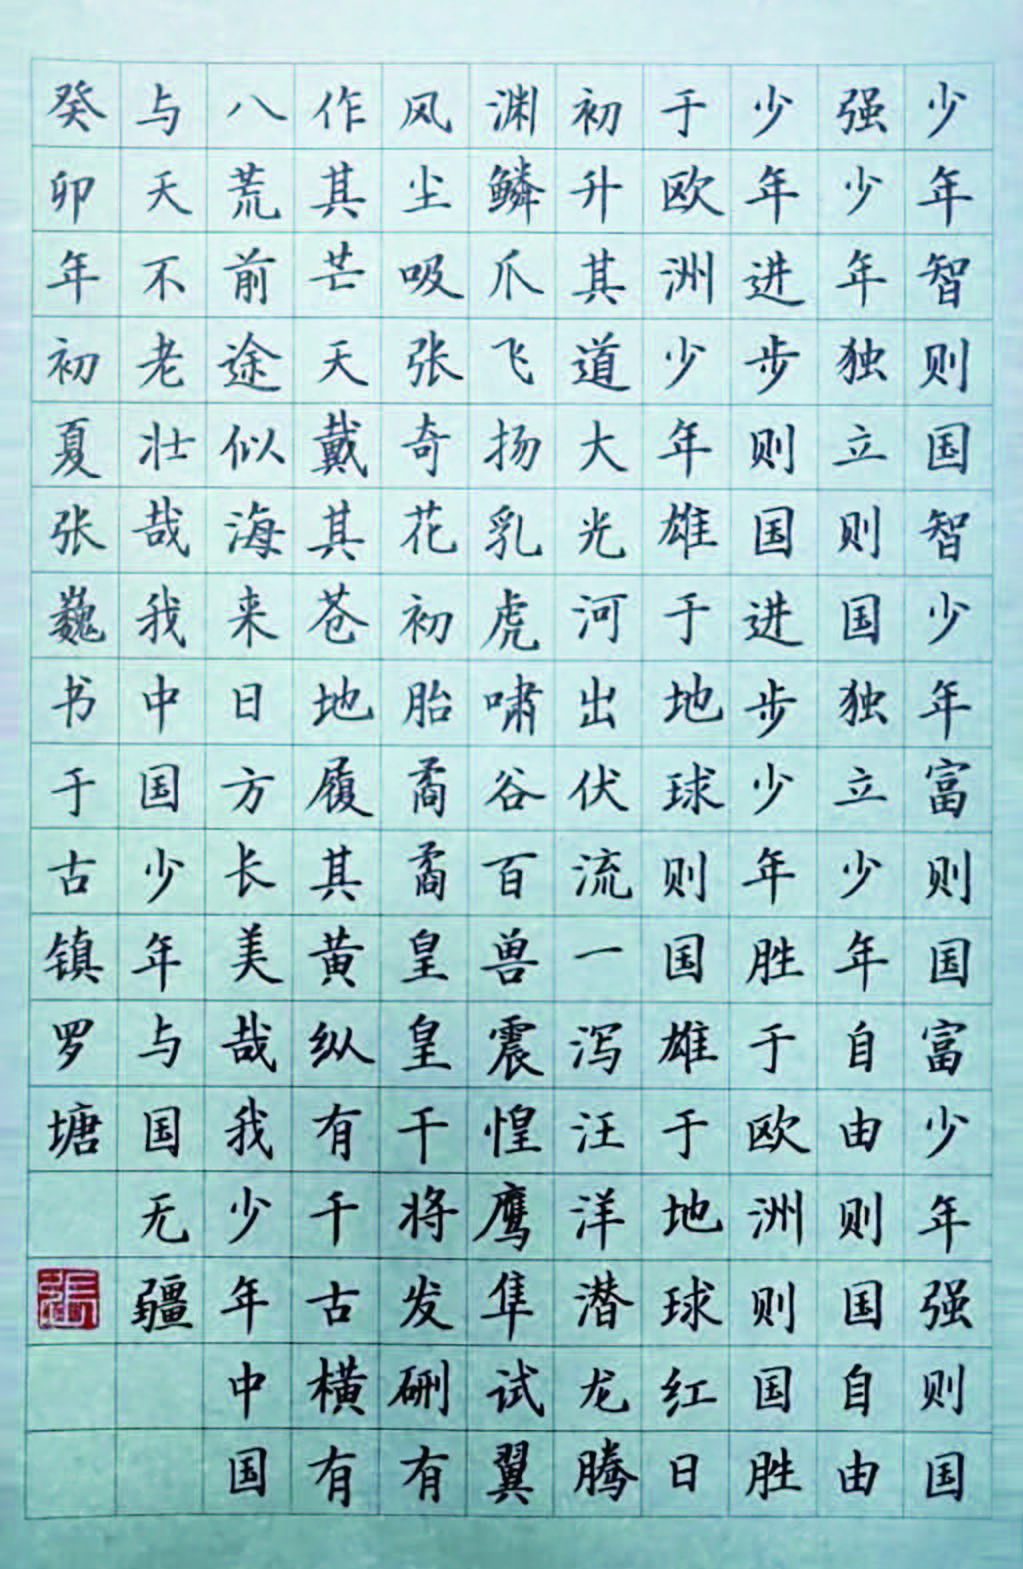 少年智则国智少年富则国富少年强则国
强少年独立则国独立少年自由则国自由
少年进步则国进步少年胜于欧洲则国胜
于欧洲少年雄于地球则国雄于地球红日
初升其道大光河出伏流一泻汪洋潜龙腾
渊鳞爪飞扬乳虎啸谷百兽震惶鹰隼试翼
风尘吸张奇花初胎矞矞皇皇干将发硎有
作其芒天戴其苍地履其黄纵有千古横有
八荒前途似海来日方长美哉我少年中国
与天不老壮哉我中国少年与国无疆
癸卯年初夏张巍书于古镇罗塘